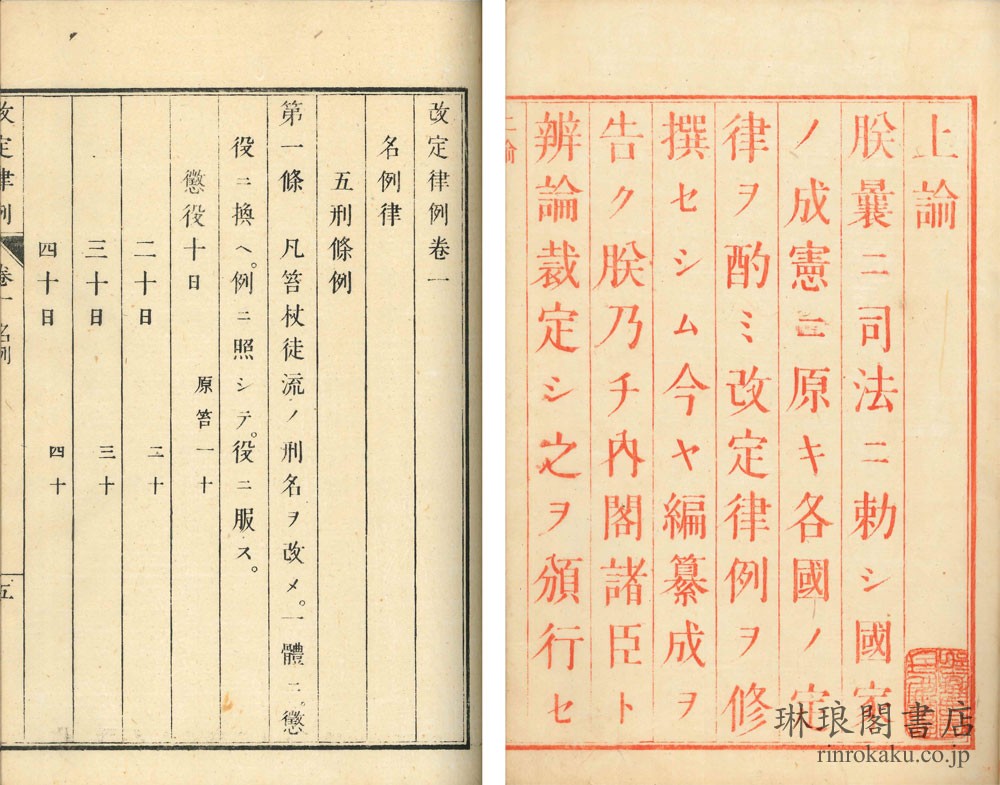 上論
朕曩ニ司法ニ勅シ國家
ノ成憲ニ原キ各國ノ定
律ヲ酌ミ改定律例ヲ修
撰セシム今ヤ編纂成ヲ
告ク朕乃チ內閣諸臣ト
辨論裁定シ之ヲ頒行セ
改定律例卷一
名例律
五刑條例
第一條 凡笞杖徒流ノ刑名ヲ改メ。一體ニ。懲
役ニ換ヘ。例ニ照シテ。役ニ服ス。
懲役十日 原笞一十
二十日 二十
三十日 三十
四十日 四十
改定律例 卷一 名例 五
琳琅閣書店
rinrokaku.co.jp